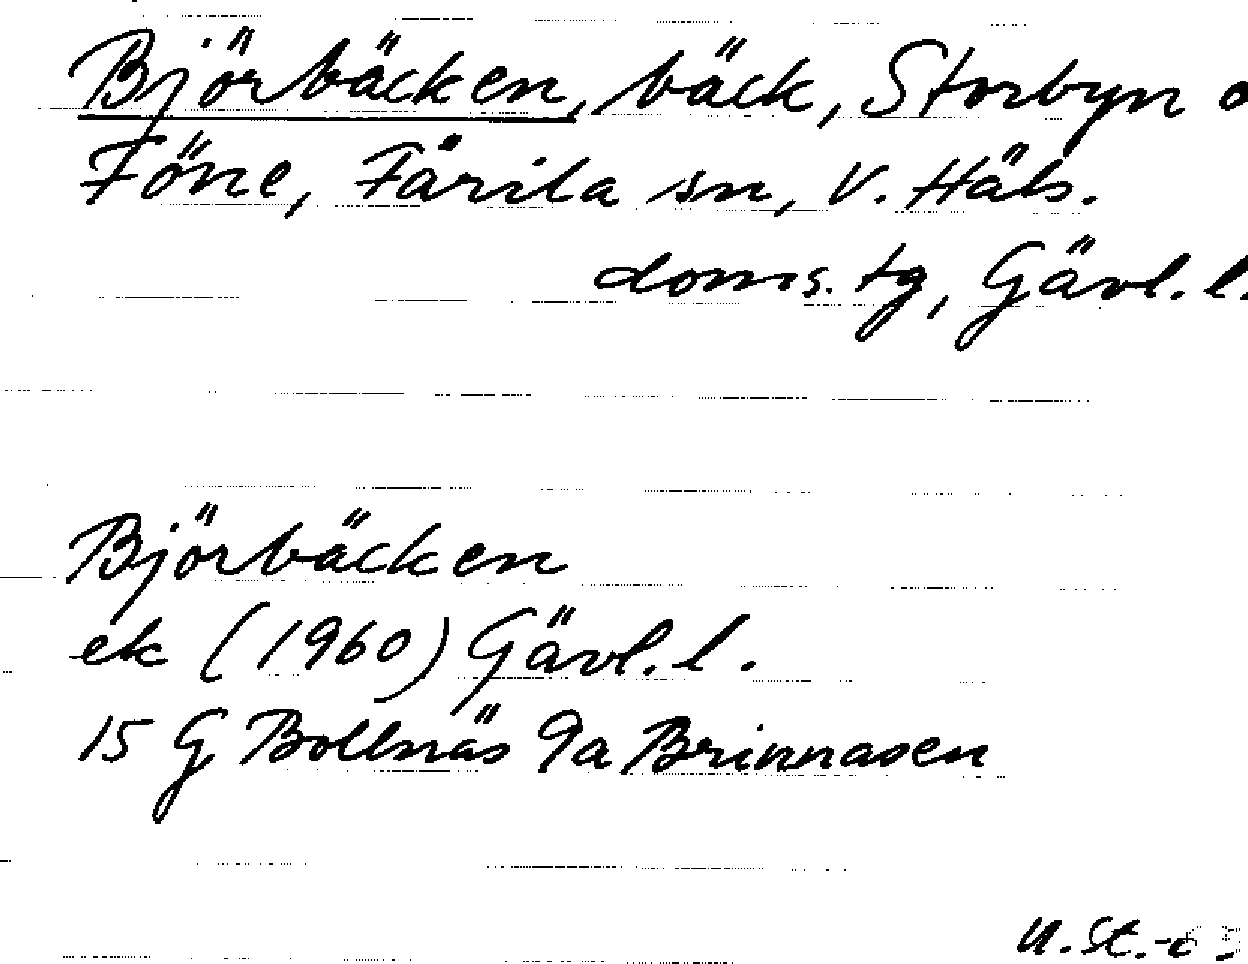 Björbäcken, bäck, Storbyn o
Föne, Färila sn, V. Häls.
doms. tg, Gävl. l.
Björbäcken
ek (1960) Gävl. l.
15 G Bollnäs 9a Brinnasen
U. St.